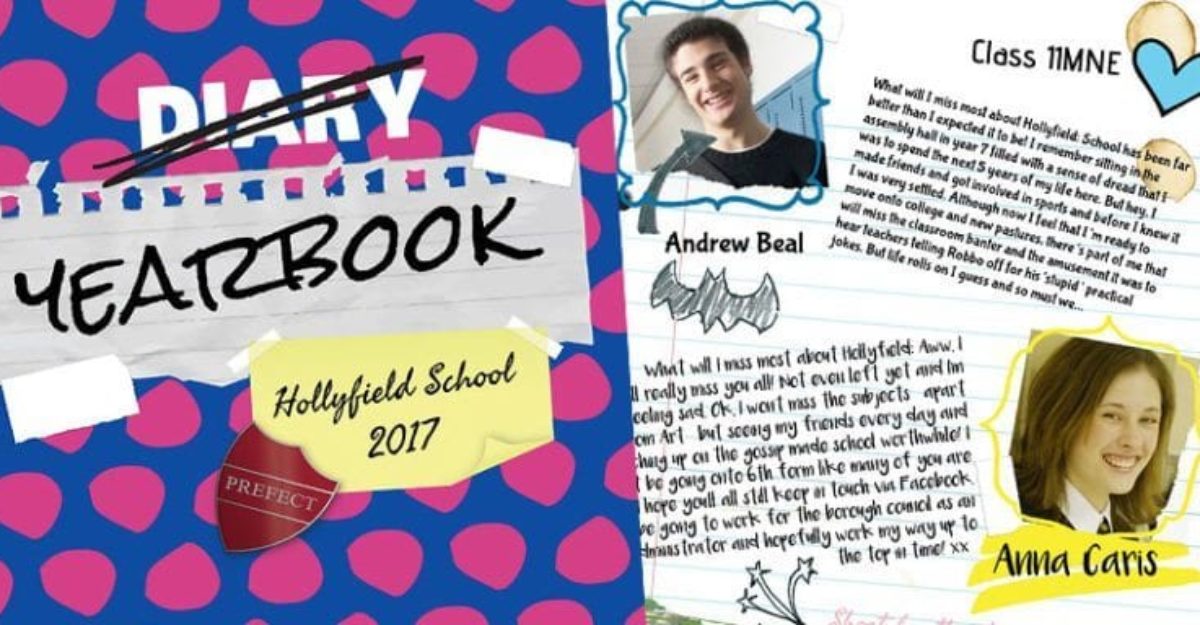 DIARY
YEARBOOK
Hollyfield School
2017
PREFECT
Class 11MNE
What will I miss most about Hollyfield: School has been far
better than I expected it to be! I remember sitting in the
assembly hall in year 7 filled with a sense of dread that I
was to spend the next 5 years of my life here. But hey, I
made friends and got involved in sports and before I knew it
I was very settled. Although now I feel that I'm ready to
move onto college and new pastures, there's part of me that
will miss the classroom banter and the amusement it was to
hear teachers telling Robbo off for his 'stupid' practical
jokes. But life rolls on I guess and so must we...
Andrew Beal
What will I miss most about Hollyfield: Aww, I
ll really miss you all! Not even left yet and Im
eeling sad. Ok, I wont miss the subjects apart
om Art but seeing my friends every day and
ching up on the gossip made school worthwhile! I
t be going onto 6th form like many of you are
hope youll all still keep in touch via Facebook.
going to work for the borough council as an
dministrator and hopefully work my way up to
the top in time! xx
Anna Caris